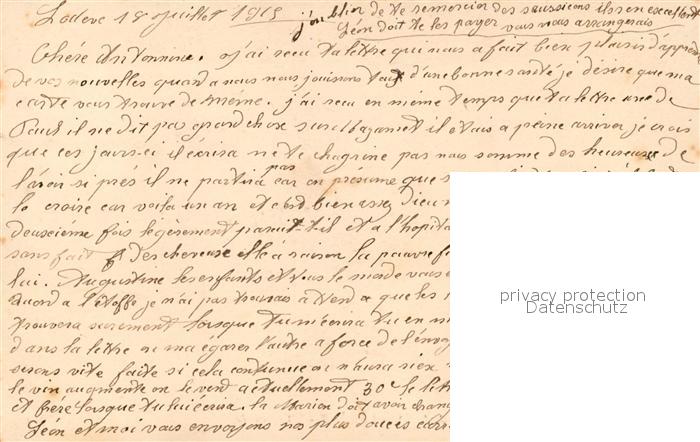 Lodève 18 juillet 1915 j'oublier de te remercier des saucissons ils son excellents
Léon doit te les payer vous vous arrangerais
Chère Antonine. j'ai recu ta lettre qui nous a fait bien plaisir d'apprendre
de vos nouvelles quand a nous nous jouissons tous d'une bonne santé je désire que ma
carte vous trouve de même. j'ai recu en même temps que ta lettre une de
Paul il ne dit pas grand chose sur il étais a peine arriver je crois
que ces jours-ci il écrira ne te chagrine pas nous somme des heureuse de
l'avoir si près il ne partira pas car on présume que
le croire car voila un an et c'est bien assez Dieu
deuxième fois légèrement parait-t-il et a l'hopita
sans fait des elle a raison la pauvre
lui. Augustine les enfants et tous le monde vous
Quand a l'étoffe je n'ai pas trouvais a Vend a que les
trouvera surement lorsque tu m'écrira tu en
dans la lettre ou m'a égarer l'autre a force de
serons vite faite si cela continue on n'aura rien
le vin augmente on le vend actuellement 30 f
et frère lorsque tu lui écrira. la Marion doit avoir
Léon et moi vous envoyons nos plus douces
privacy protection
Datenschutz